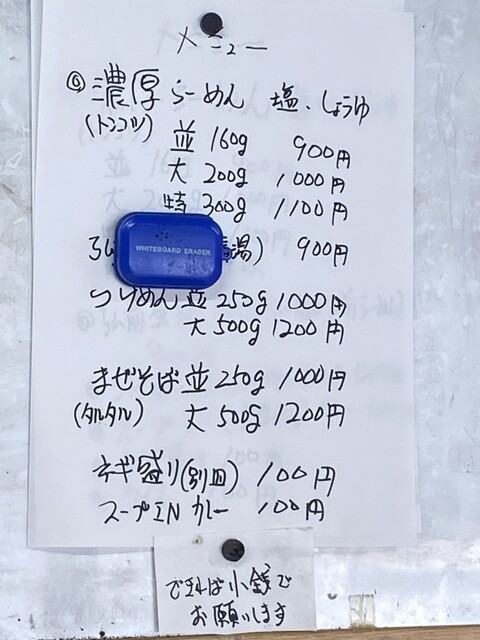 メニュー
◎濃厚らーめん 塩、しょうゆ
(トンコツ) 並 160g 900円
大 200g 1000円
特 300g 1100円
WHITEBOARD ERASER
湯) 900円
つけめん 並 250g 1000円
大 500g 1200円
まぜそば 並 250g 1000円
(タルタル) 大 500g 1200円
ネギ盛り(別皿) 100円
スープIN カレー 100円
できれば小銭で
お願いします